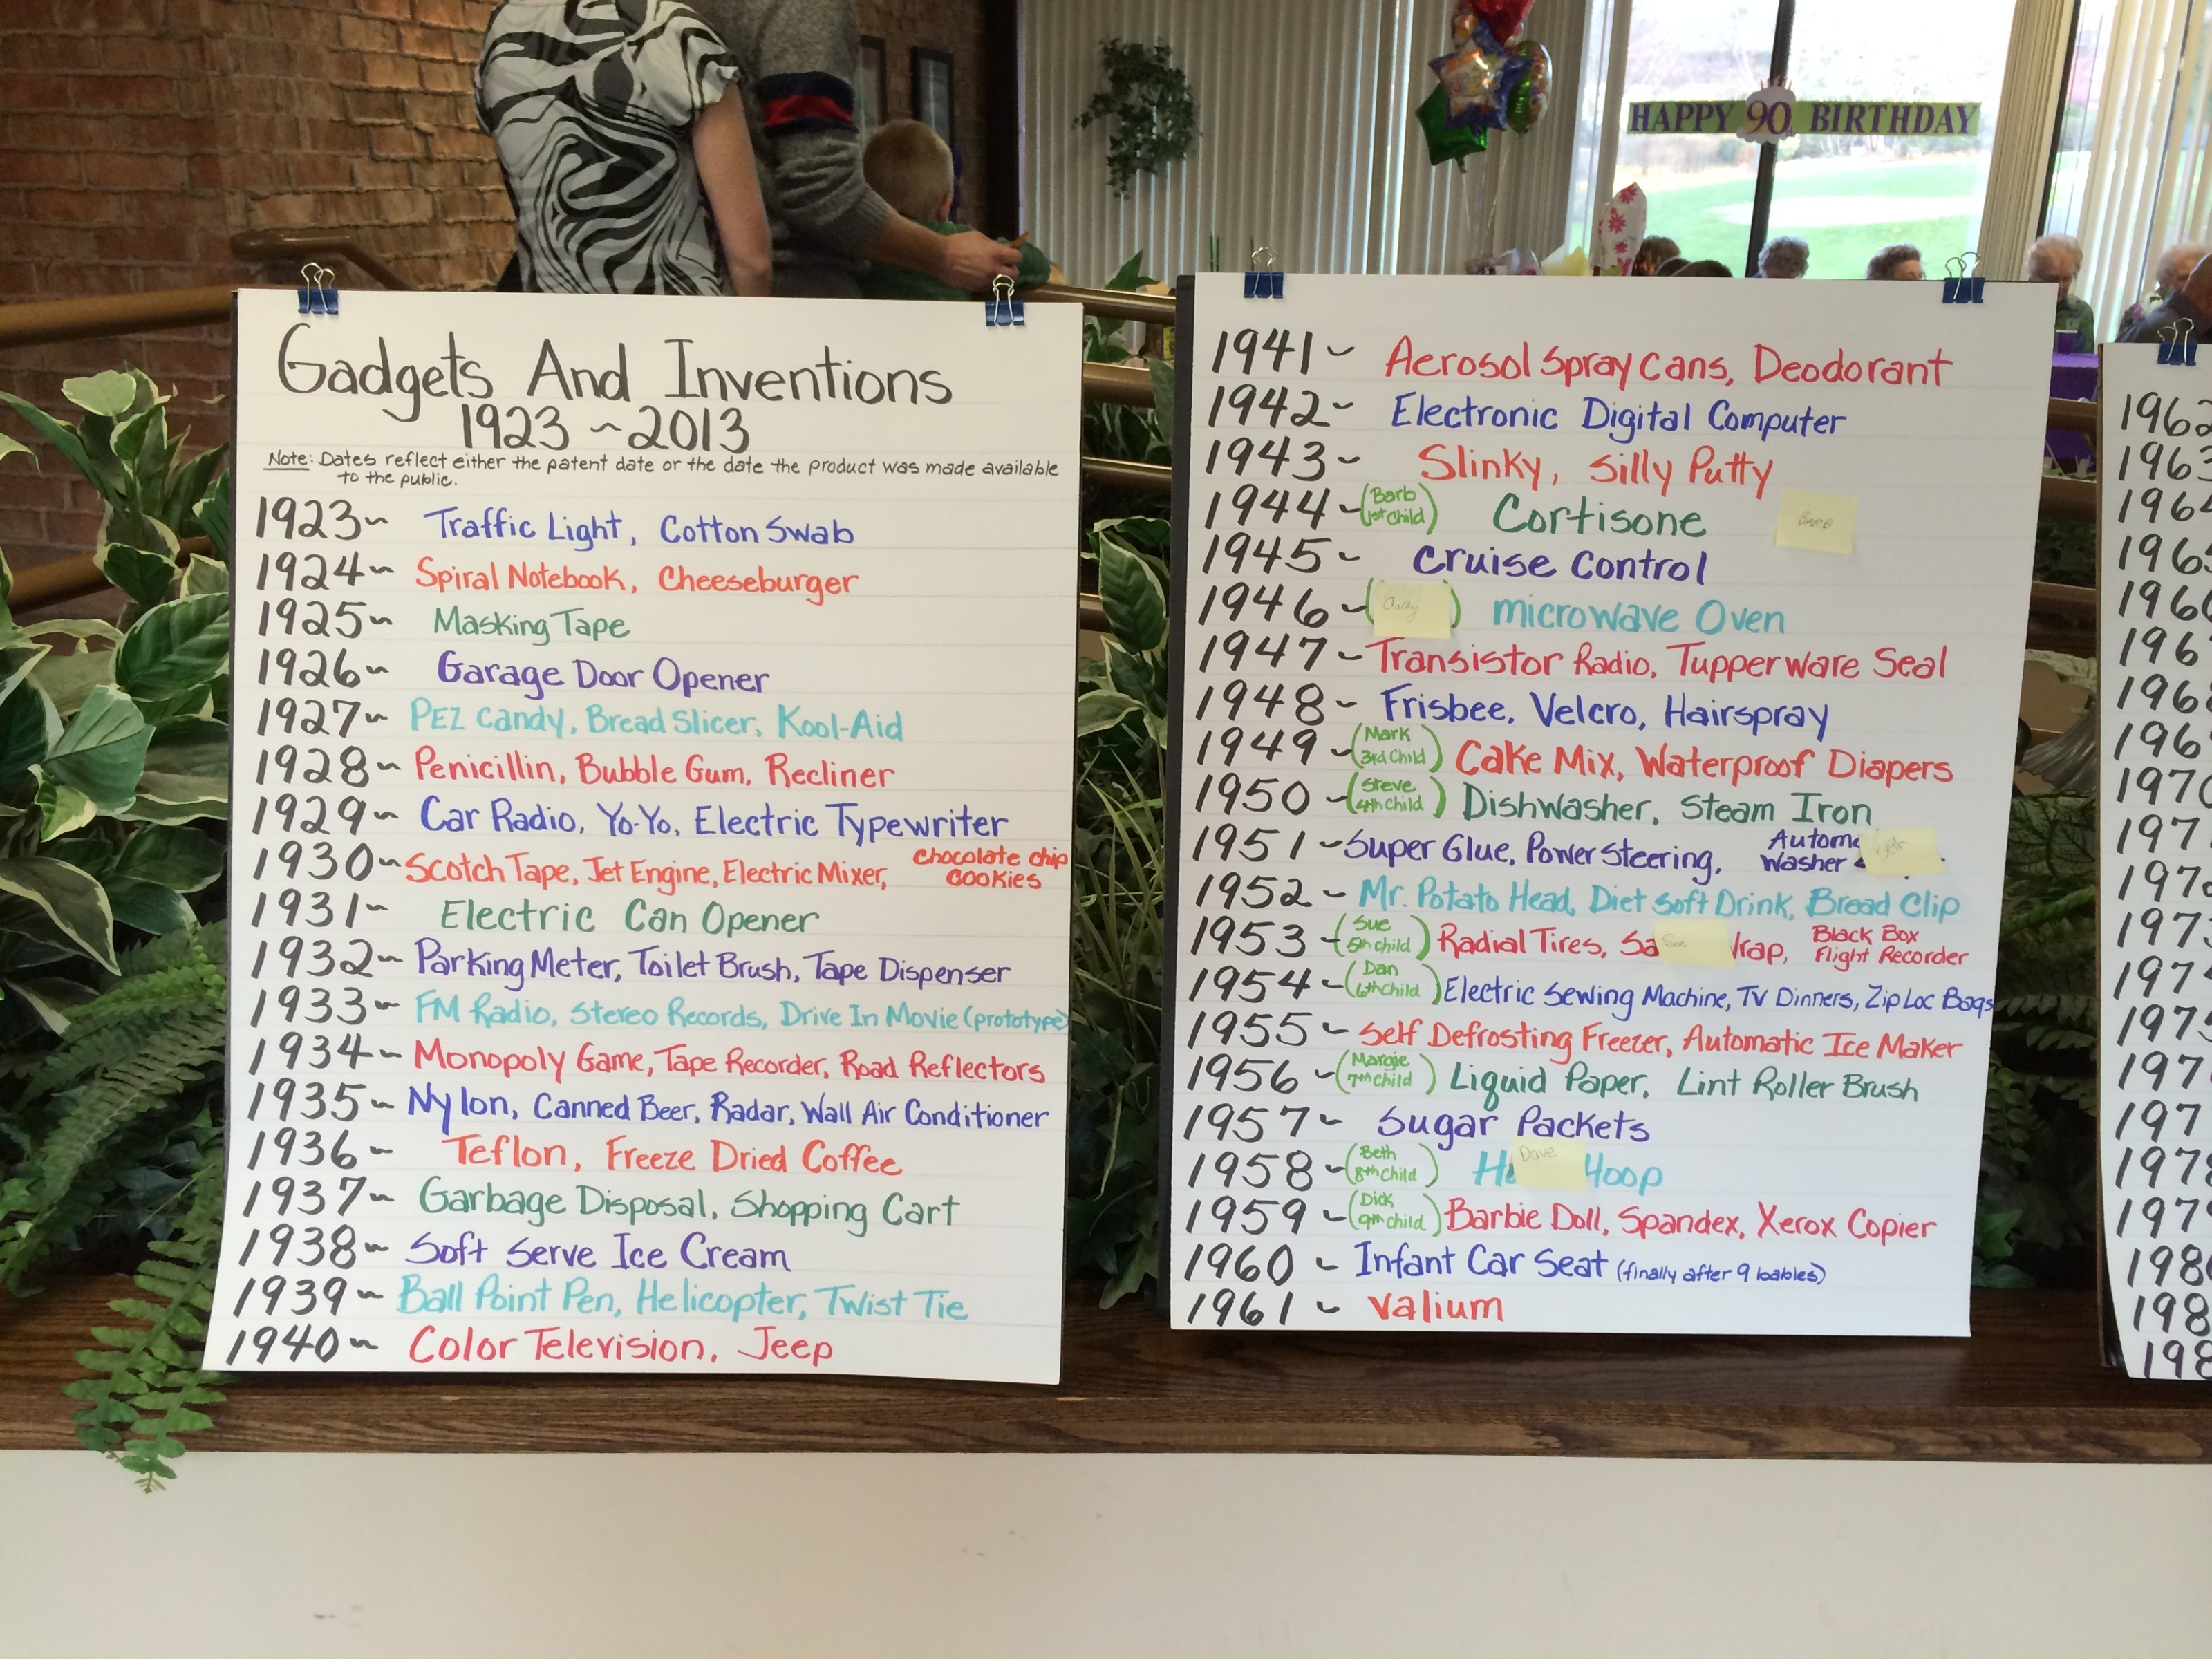 HAPPY 90 BIRTHDAY
Gadgets And Inventions
1923~2013
Note: Dates reflect either the patent date or the date the product was made available
to the public.
1923~ Traffic Light, Cotton Swab
1924~ Spiral Notebook, Cheeseburger
1925~ Masking Tape
1926~ Garage Door Opener
1927~ PEZ Candy, Bread Slicer, Kool-Aid
1928~ Penicillin, Bubble Gum, Recliner
1929~ Car Radio, Yo-Yo, Electric Typewriter
1930~ Scotch Tape, Jet Engine, Electric Mixer, Chocolate chip Cookies
1931~ Electric Can Opener
1932~ Parking Meter, Toilet Brush, Tape Dispenser
1933~ FM Radio, Stereo Records, Drive In Movie (prototype)
1934~ Monopoly Game, Tape Recorder, Road Reflectors
1935~ Nylon, Canned Beer, Radar, Wall Air Conditioner
1936~ Teflon, Freeze Dried Coffee
1937~ Garbage Disposal, Shopping Cart
1938~ Soft Serve Ice Cream
1939~ Ball Point Pen, Helicopter, Twist Tie
1940~ Color Television, Jeep
1941~ Aerosol Spray Cans, Deodorant
1942~ Electronic Digital Computer
1943~ Slinky, Silly Putty
1944~ (Barb 1st Child) Cortisone Barb
1945~ Cruise Control
1946~ ( ) Microwave Oven
1947~ Transistor Radio, Tupperware Seal
1948~ Frisbee, Velcro, Hairspray
1949~ (Mark 3rd Child) Cake Mix, Waterproof Diapers
1950~ (Steve 4th Child) Dishwasher, Steam Iron
1951~ Super Glue, Power Steering, Autom Washer
1952~ Mr. Potato Head, Diet Soft Drink, Bread Clip
1953~ (Sue 5th Child) Radial Tires, Sa Sue rap, Black Box Flight Recorder
1954~ (Dan 6th Child) Electric Sewing Machine, TV Dinners, Zip Loc Bags
1955~ Self Defrosting Freezer, Automatic Ice Maker
1956~ (Margie 7th Child) Liquid Paper, Lint Roller Brush
1957~ Sugar Packets
1958~ (Beth 8th Child) H Dave Hoop
1959~ (Dick 9th Child) Barbie Doll, Spandex, Xerox Copier
1960~ Infant Car Seat (finally after 9 babies)
1961~ Valium
196
1963
196
196
196
196
196
196
197
197
197
197
197
197
197
197
197
197
198
198
198